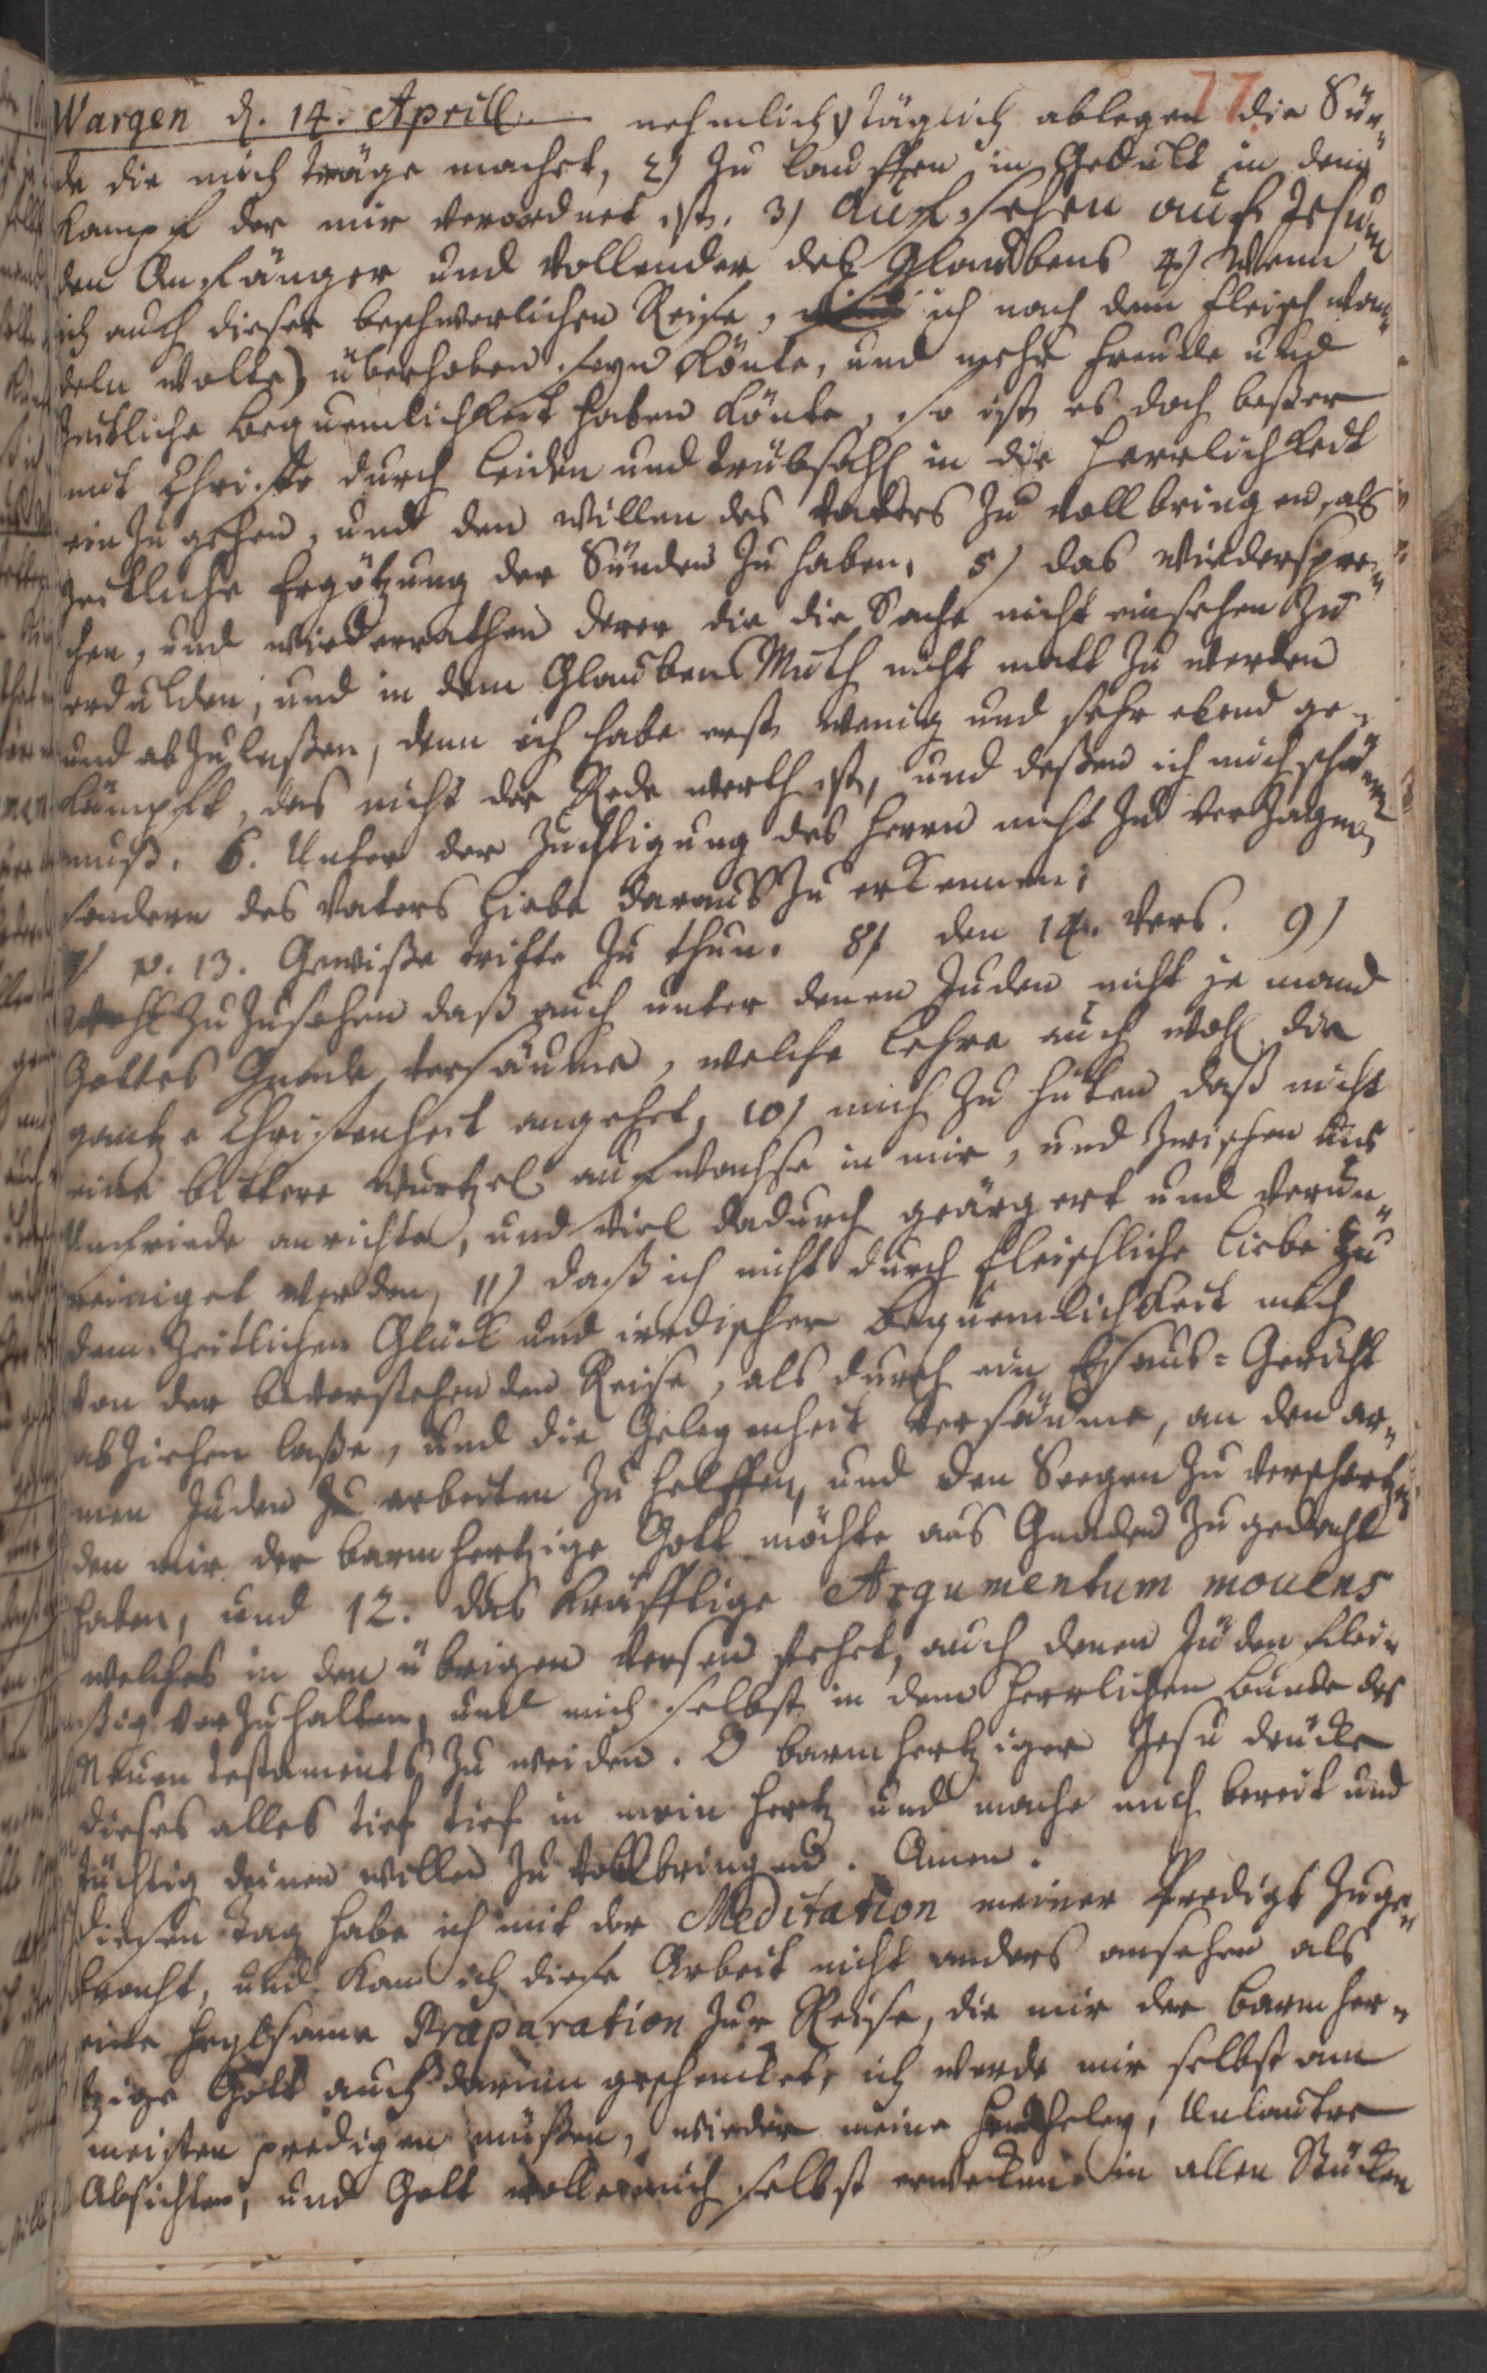 77
Wargen d. 14. Aprill. nehmlich 1) täglich ablegen die Sün-
de die mich träge machet, 2) zu lauffen in Gedult in dem
Kampf der mir verordnet ist. 3) Aufsehen auf Jesum
den Anfänger und Vollender des Glaubens 4) Wenn
ich auch dieser beschwerlichen Reise, ich nach dem Fleisch wan-
deln wolte) überhoben seyn könte, und mehr Freude und
zeitliche Bequemlichkeit haben könte, so ist es doch beßer
mit Christo durch Leiden und Trübsahl in die Herrlichkeit
ein zu gehen, und den Willen des Vaters zu vollbringen, als
zeitliche Ergötzung der Sünden zu haben. 5) das Wiederspre-
chen, und wiederrathen derer die die Sache nicht einsehen zu
erdulden, und in dem Glaubens Muth nicht matt zu werden
und abzulaßen, denn ich habe erst wenig und sehr elend ge-
kämpft, das nicht der Rede werth ist, und deßen ich mich schämen
muß. 6. Unter der Züchtigung des Herrn nicht zu verzagen,
sondern des Vaters Liebe daraus zu erkennen;
7) v. 13. Gewiße tritte zu thun. 8) den 14. Vers. 9)
wohl zu zusehen daß auch unter denen Juden nicht jemand
Gottes Gnade versäume, welche Lehre auch wohl die
gantze Christenheit angehet, 10) mich zu hüten daß nicht
eine bittere Wurtzel aufwachse in mir, und zwischen uns
Unfriede anrichte, und viel dadurch geärgert und verun-
reiniget werden, 11) daß ich nicht durch fleischliche Liebe zu
dem zeitlichen Glück und irrdischer Bequemlichkeit mich
von der bevorstehenden Reise, als durch ein Esaus-Gericht
abziehen laße, und die Gelegenheit versäume, an den ar-
men Juden zu arbeiten zu helffen, und den Seegen zu verschertzen
den mir der barmhertzige Gott möchte aus Gnaden zu gedacht
haben, und 12. das kräfftige Argumentum movens
welches in den übrigen Versen stehet, auch denen Juden flei-
ßig vorzuhalten, und mich selbst in dem herrlichen Bunde des
Neuen Testaments zu weiden. O barmhertziger Jesu drücke
dieses alles tief tief in mein Hertz und mache mich bereit und
tüchtig deinen Willen zu vollbringen. Amen.
Diesen Tag habe ich mit der Meditation meiner Predigt zuge-
bracht, und kan ich diese Arbeit nicht anders ansehen als
eine heylsame Præparation zur Reise, die mir der barmher-
tzige Gott auch darinn geschencket, ich werde mir selbst am
meisten predigen müßen, wieder meine Heucheley, Unlautre
Absichten, und Gott wolle mich selbst erwecken in allen Stücken